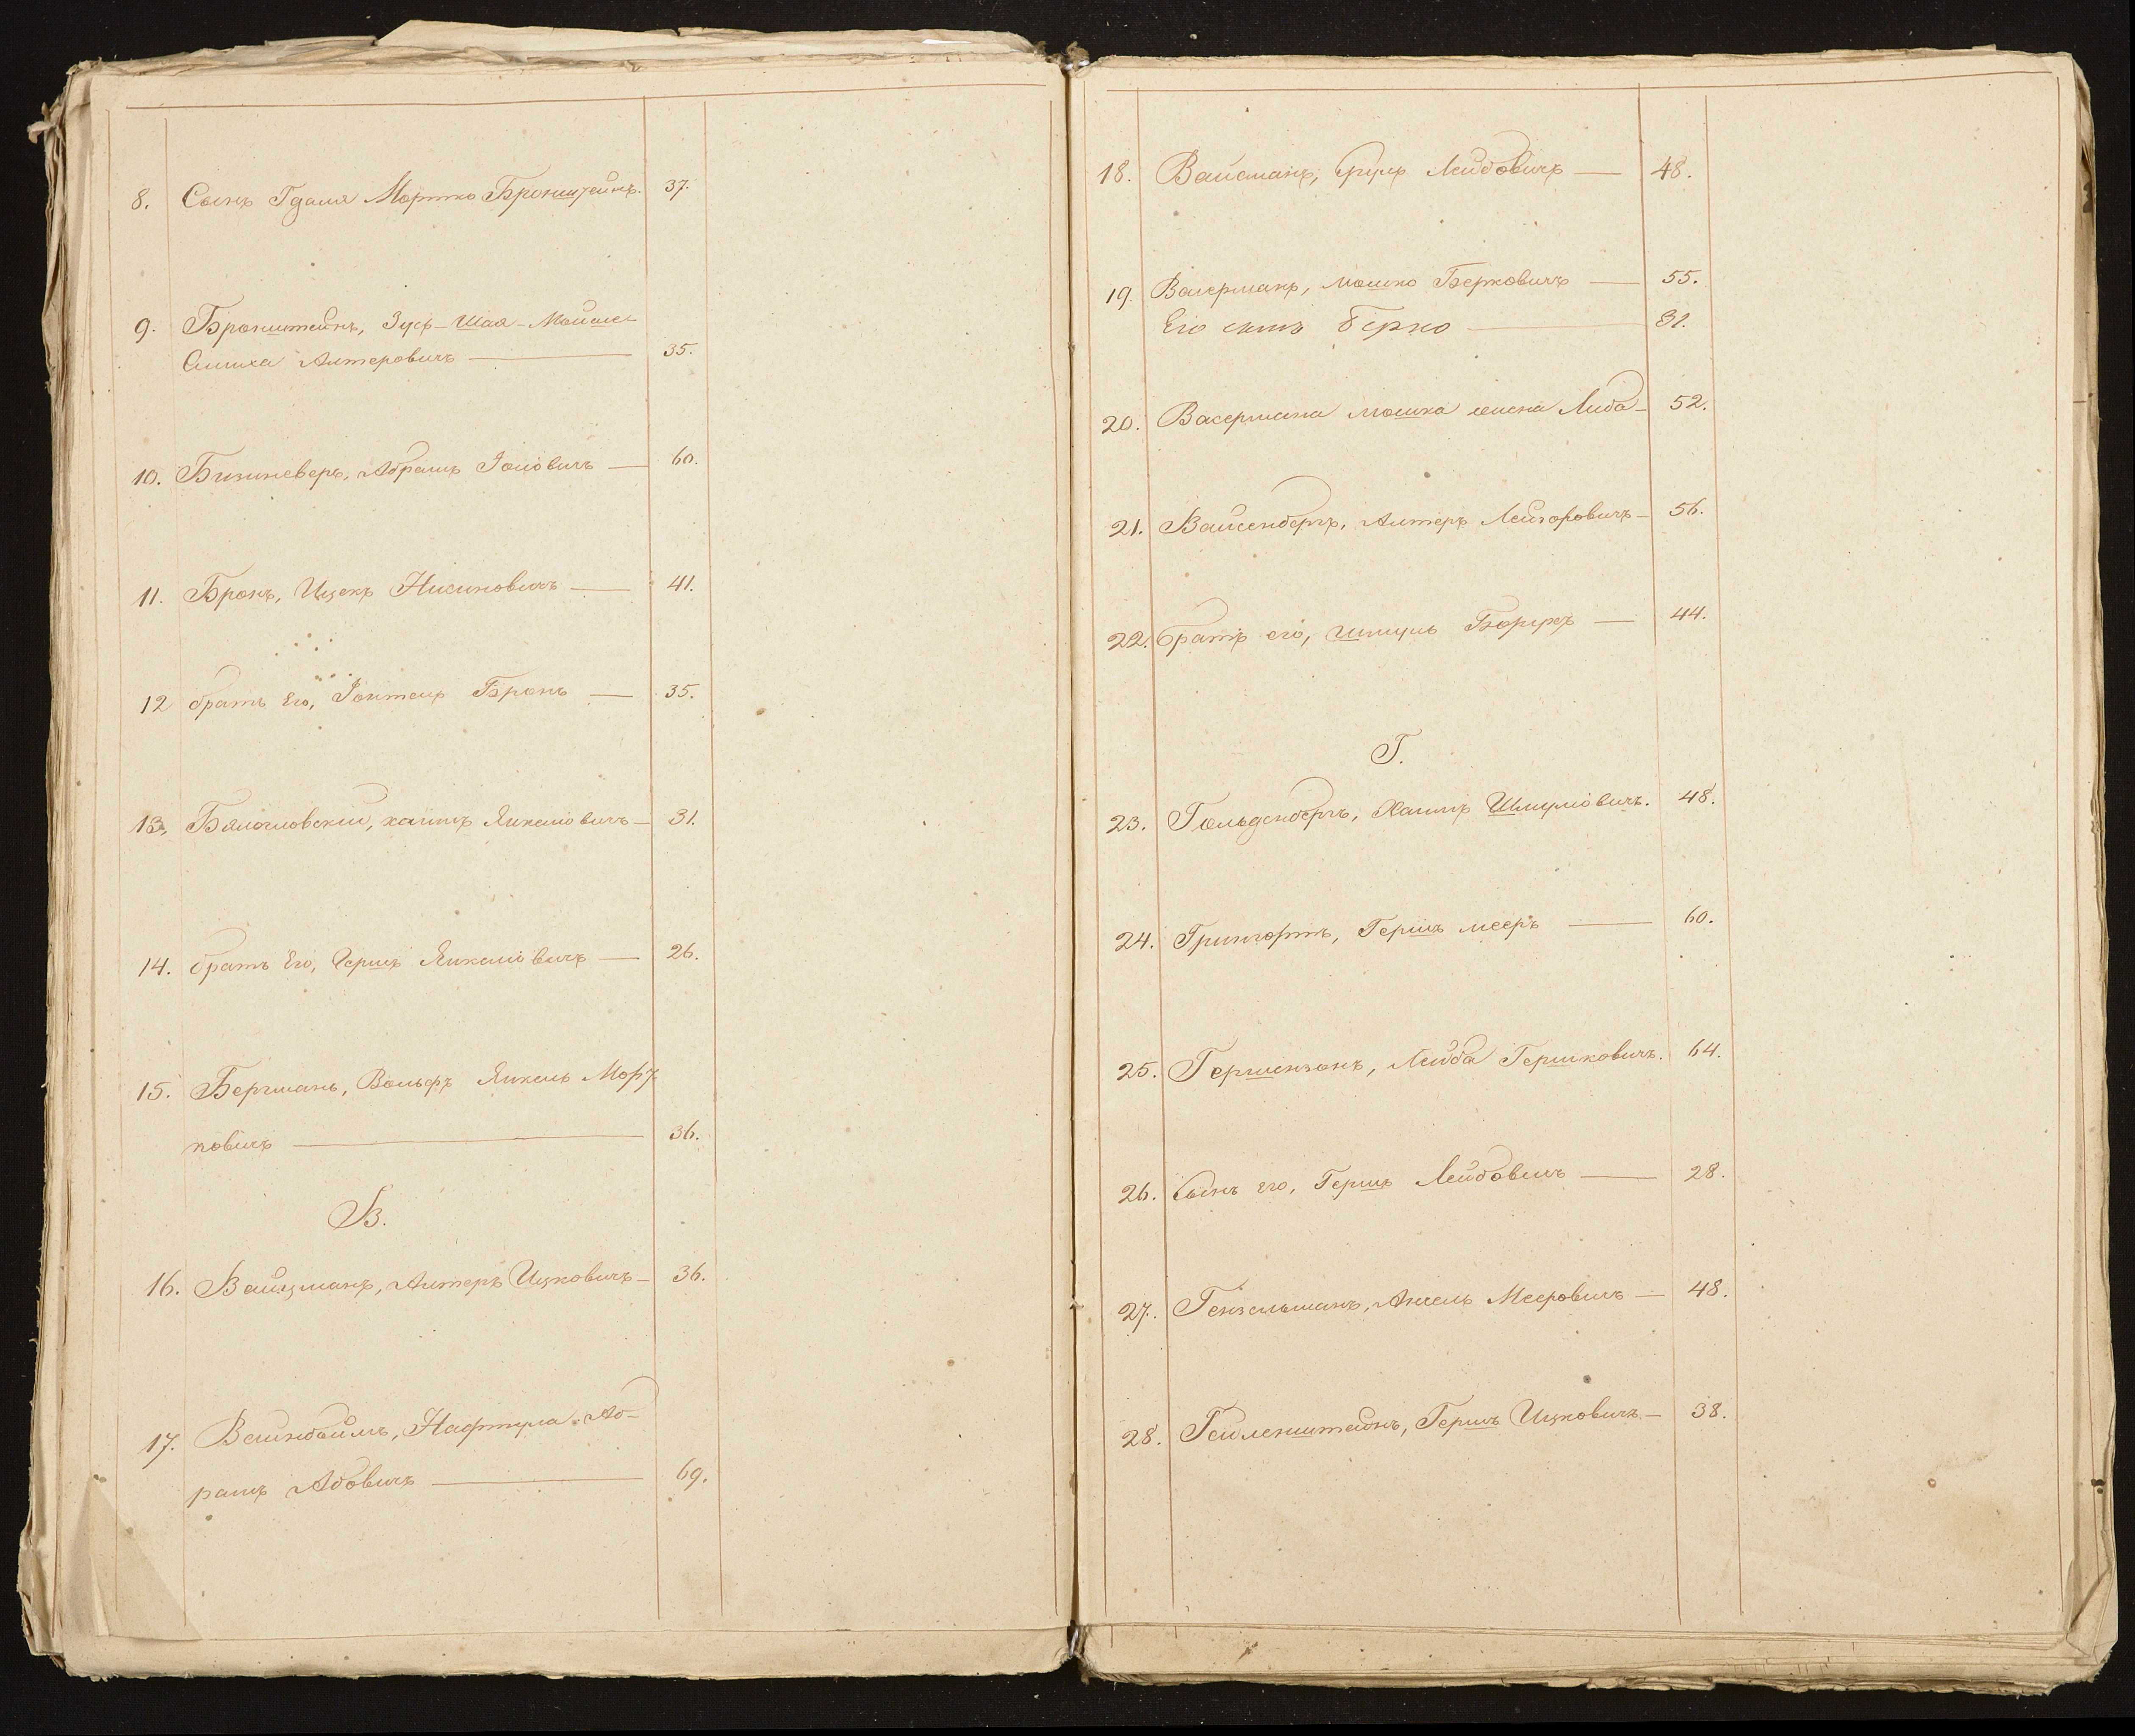 8. Сынъ Гдаля Мортко Бронштейнъ. 37.
9. Бронштейнъ, Зусь-Шая-Мойше
Симха Алтеровичъ — 35.
10. Бизиневеръ, Абрамъ Іойовичъ — 60.
11. Бронъ, Ицекъ Нисиновичъ — 41.
12 братъ Его, Іонтель Бронъ — 35.
13. хаимъ Янкеліовичъ — 31.
14. братъ Его, Гершъ Янкеліовичъ — 26.
15. Бергманъ, Вольфъ Янкель Морт
ковичъ — 36.
В.
16. Вайцманъ, Алтеръ Ицковичъ — 36.
17. Вейнбоймъ, Нафтула Аб-
рамъ Абовичъ — 69.
18. Вайсманъ, Сруль Лейбовичъ — 48.
19. Васерманъ, мошко Берковичъ — 55.
Его сынъ Берко — 31.
20. Васермана мошка жена Либа — 52.
21. Вайсенбергъ, Алтеръ Лейзоровичъ — 56.
22. братъ его, Шмуль Борухъ — 44.
Г.
23. Гольденбергъ, Хаимъ Шмуліовичъ. 48.
24. Грингортъ, Гершъ мееръ — 60.
25. Гершензонъ, Лейба Гершковичъ. 64.
26. Сынъ его, Гершъ Лейбовичъ — 28.
27. Гензельманъ, Анчель Мееровичъ — 48.
28. Гейленштейнъ, Гершъ Ицковичъ — 38.